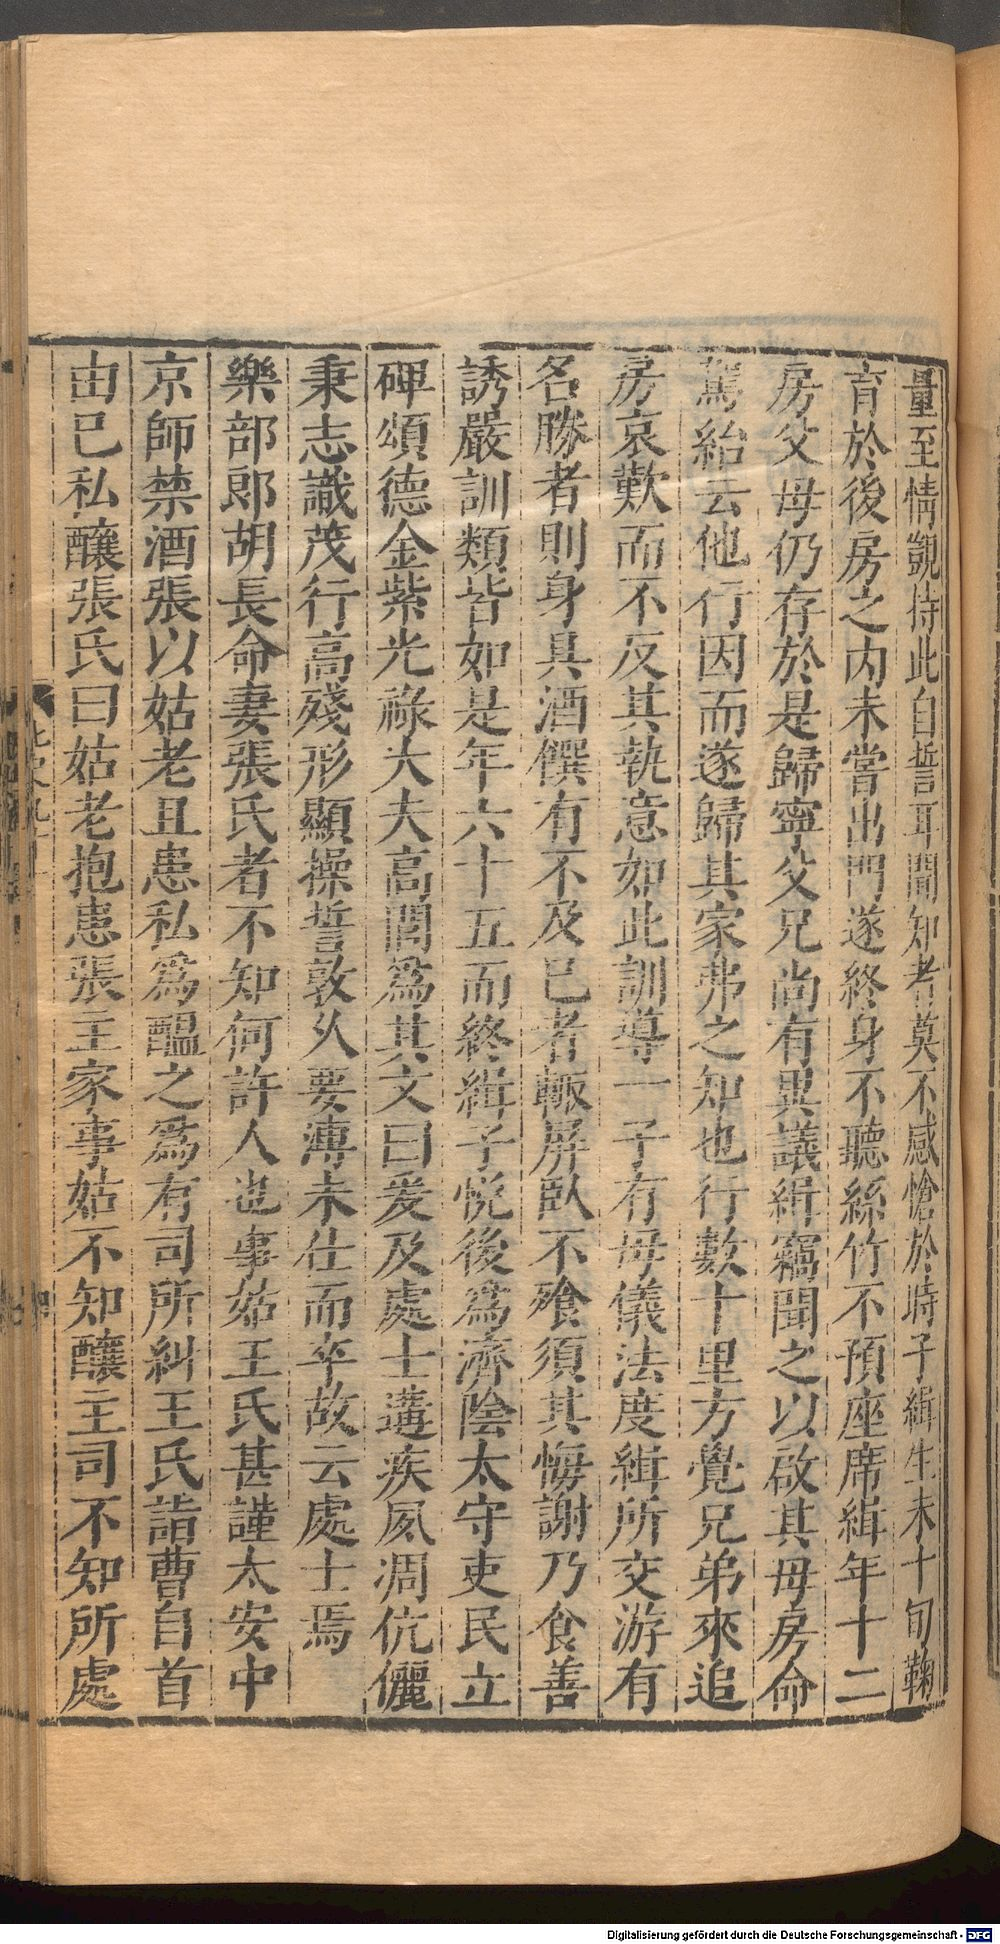 量至情覬侍此自誓耳聞知者莫不感愴於時子緝生未十旬鞠
育於後房之内未嘗出門遂終身不聽絲竹不預座席緝年十二
房父母仍存於是歸寧父兄尚有異議緝竊聞之以啟其母房命
駕紿云他行因而遂歸其家弗之知也行數十里方覺兄弟來追
房哀歎而不反其執意如此訓導一子有母儀法度緝所交游有
名勝者則身具酒饌有不及已者輙屏臥不飱須其悔謝乃食善
誘嚴訓類皆如是年六十五而終緝子悅後爲濟陰太守吏民立
碑頌德金紫光祿大夫高閭爲其文曰爰及處士遘疾夙凋伉儷
秉志識茂行高殘形顯操誓敦乆要溥未仕而卒故云處士焉
樂部郎胡長命妻張氏者不知何許人也事姑王氏甚謹太安中
京師禁酒張以姑老且患私爲醞之爲有司所糾王氏詣曹自首
由已私釀張氏曰姑老抱患張主家事姑不知釀主司不知所處
Digitalisierung gefördert durch die Deutsche Forschungsgemeinschaft - DFG